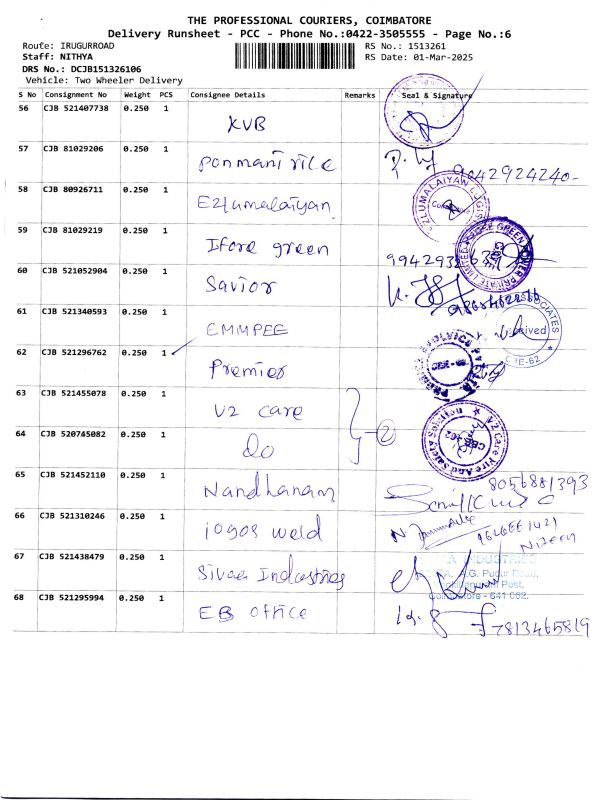 THE PROFESSIONAL COURIERS, COIMBATORE
Delivery Runsheet - PCC - Phone No.:0422-3505555 - Page No.:6
Route: IRUGURROAD RS No.: 1513261
Staff: NITHYA RS Date: 01-Mar-2025
DRS No.: DCJB151326106
Vehicle: Two Wheeler Delivery
S No Consignment No Weight PCS Consignee Details Remarks Seal & Signature
56 CJB 521407738 0.250 1 KVB
57 CJB 81029206 0.250 1 Ponmani rice 9042924240-
58 CJB 80926711 0.250 1 Ezhumalaiyan
59 CJB 81029219 0.250 1 Ifore green
60 CJB 521052904 0.250 1 Savior
61 CJB 521340593 0.250 1 EMMPEE
62 CJB 521296762 0.250 1 Premier
63 CJB 521455078 0.250 1 V2 care
64 CJB 520745082 0.250 1 Do 2
65 CJB 521452110 0.250 1 Nandhanam 8056881393
66 CJB 521310246 0.250 1 iogos weld
67 CJB 521438479 0.250 1 Sivaa Industries
A INDUSTRIES
A.G. Pudur Road,
Post,
Coimbatore - 641 062.
68 CJB 521295994 0.250 1 EB office 7813465819